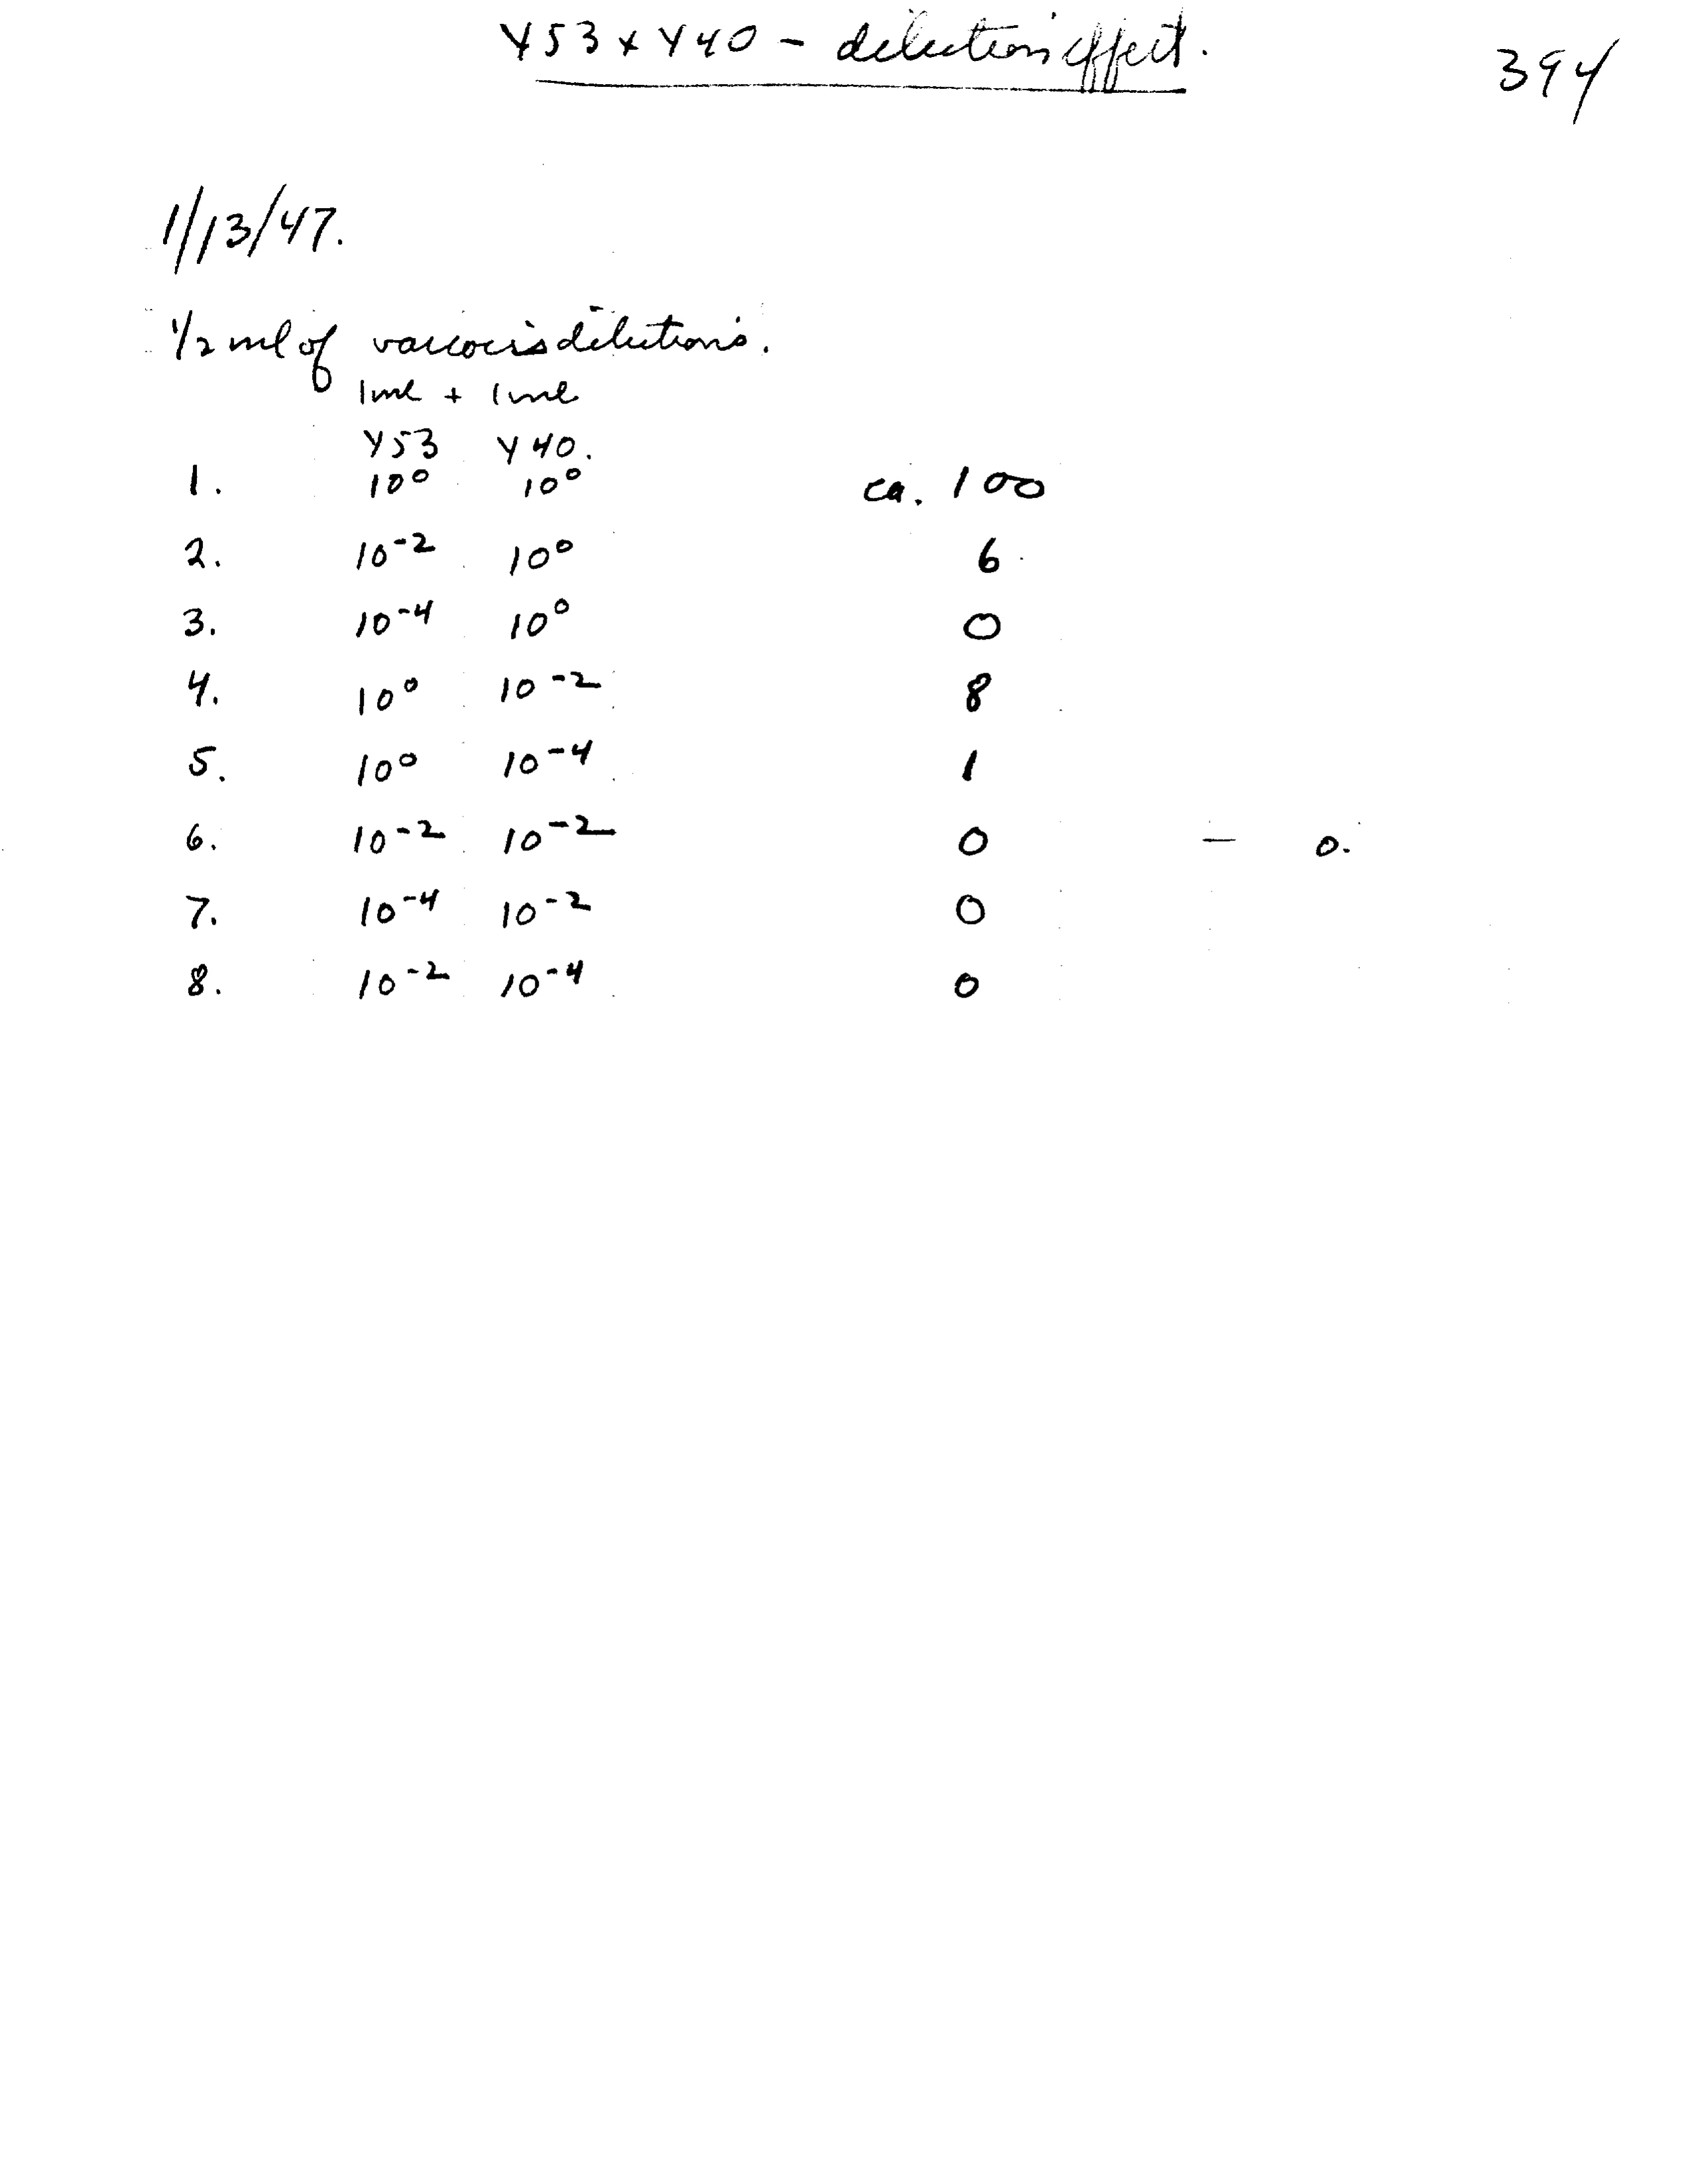 Y53 x Y40 - dilution effect.
394
1/13/47.
1/2 ml of various dilutions.
1ml + 1ml
Y53 Y40.
1. 10⁰ 10⁰ ca. 100
2. 10⁻² 10⁰ 6
3. 10⁻⁴ 10⁰ 0
4. 10⁰ 10⁻² 8
5. 10⁰ 10⁻⁴ 1
6. 10⁻² 10⁻² 0 — 0.
7. 10⁻⁴ 10⁻² 0
8. 10⁻² 10⁻⁴ 0